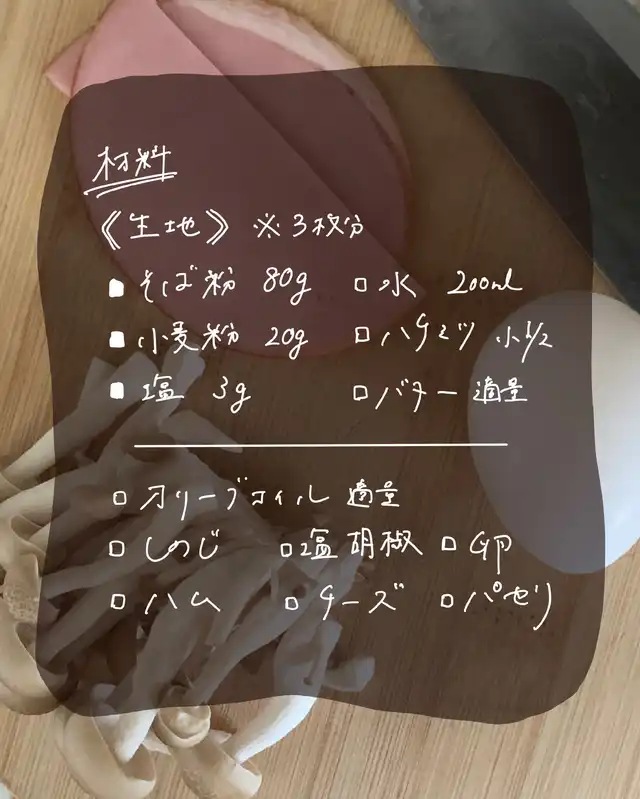 材料
《生地》 ※3枚分
■ そば粉 80g □ 水 200ml
■ 小麦粉 20g □ ハチミツ 小1/2
■ 塩 3g □ バター 適量
□ オリーブオイル 適量
□ しめじ □ 塩胡椒 □ 卵
□ ハム □ チーズ □ パセリ